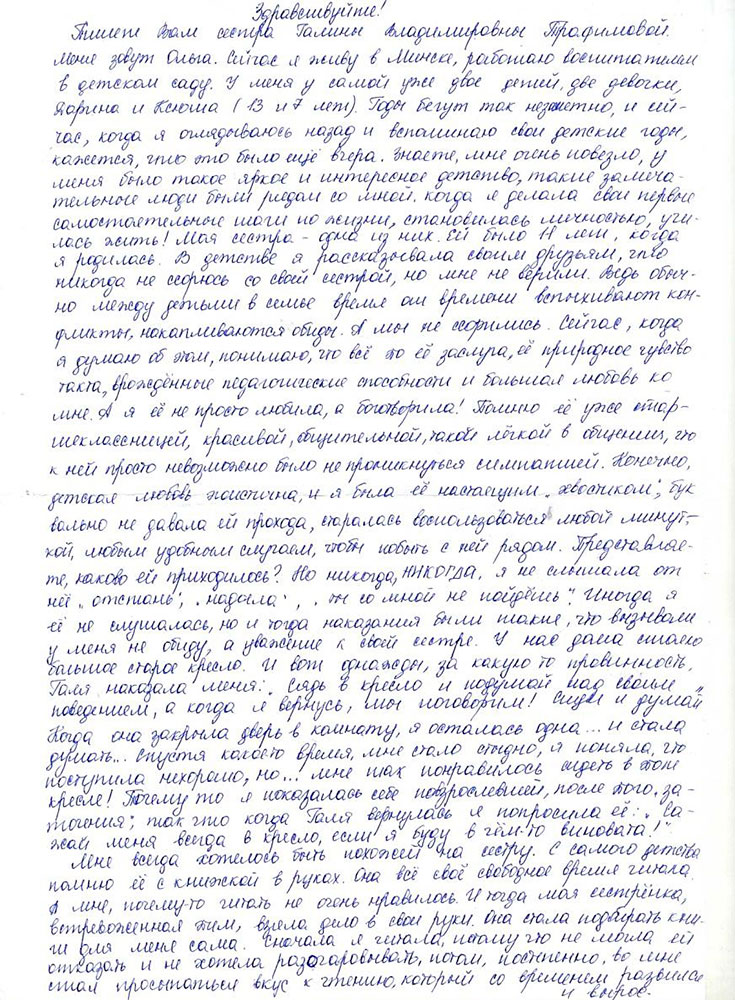 Здравствуйте!
Пишет Вам сестра Галины Владимировны Трафимовой.
Меня зовут Ольга. Сейчас я живу в Минске, работаю воспитателем
в детском саду. У меня у самой уже двое детей, две девочки,
Дарина и Ксюша (13 и 7 лет). Годы бегут так незаметно, и сей-
час, когда я оглядываюсь назад и вспоминаю свои детские годы,
кажется, что это было ещё вчера. Знаете, мне очень повезло, у
меня было такое яркое и интересное детство, такие замеча-
тельные люди были рядом со мной, когда я делала свои первые
самостоятельные шаги по жизни, становилась личностью, учи-
лась жить! Моя сестра - одна из них. Ей было 11 лет, когда
я родилась. В детстве я рассказывала своим друзьям, что
никогда не ссорюсь со своей сестрой, но мне не верили. Ведь обыч-
но между детьми в семье время от времени вспыхивают кон-
фликты, накапливаются обиды. А мы не ссорились. Сейчас, когда
я думаю об этом, понимаю, что всё это её заслуга, её природное чувство
такта, врождённые педагогические способности и большая любовь ко
мне. А я её не просто любила, а боготворила! Помню её уже стар-
шеклассницей, красивой, общительной, такой лёгкой в общении, что
к ней просто невозможно было не проникнуться симпатией. Конечно,
детская любовь эгоистична, и я была её настоящим „хвостиком", бук
вально не давала ей прохода, старалась воспользоваться любой минут-
кой, любым удобным случаем, чтобы побыть с ней рядом. Представляе-
те, каково ей приходилось? Но никогда, НИКОГДА, я не слышала от
неё „отстань", „надоела", „ты со мной не пойдёшь". Иногда я
её не слушалась, но и тогда наказания были такие, что вызывали
у меня не обиду, а уважение к своей сестре. У нас дома стояло
большое старое кресло. И вот однажды, за какую то провинность,
Галя наказала меня: „Сядь в кресло и подумай над своим
поведением, а когда я вернусь, мы поговорим! Сиди и думай"
Когда она закрыла дверь в комнату, я осталась одна... и стала
думать... Спустя какое то время, мне стало стыдно, я поняла, что
поступила нехорошо, но... мне так понравилось сидеть в этом
кресле! Почему то я показалась себе повзрослевшей, после того „за-
точения", так что когда Галя вернулась я попросила её: „Са-
жай меня всегда в кресло, если я буду в чём-то виновата!"
Мне всегда хотелось быть похожей на сестру. С самого детства
помню её с книжкой в руках. Она всё своё свободное время читала.
А мне, почему-то читать не очень нравилось. И тогда моя сестрёнка,
встревоженная этим, взяла дело в свои руки. Она стала подбирать кни-
ги для меня сама. Сначала я читала, потому что не могла ей
отказать и не хотела разочаровывать, потом, постепенно, во мне
стал просыпаться вкус к чтению, который со временем развился
и вырос.